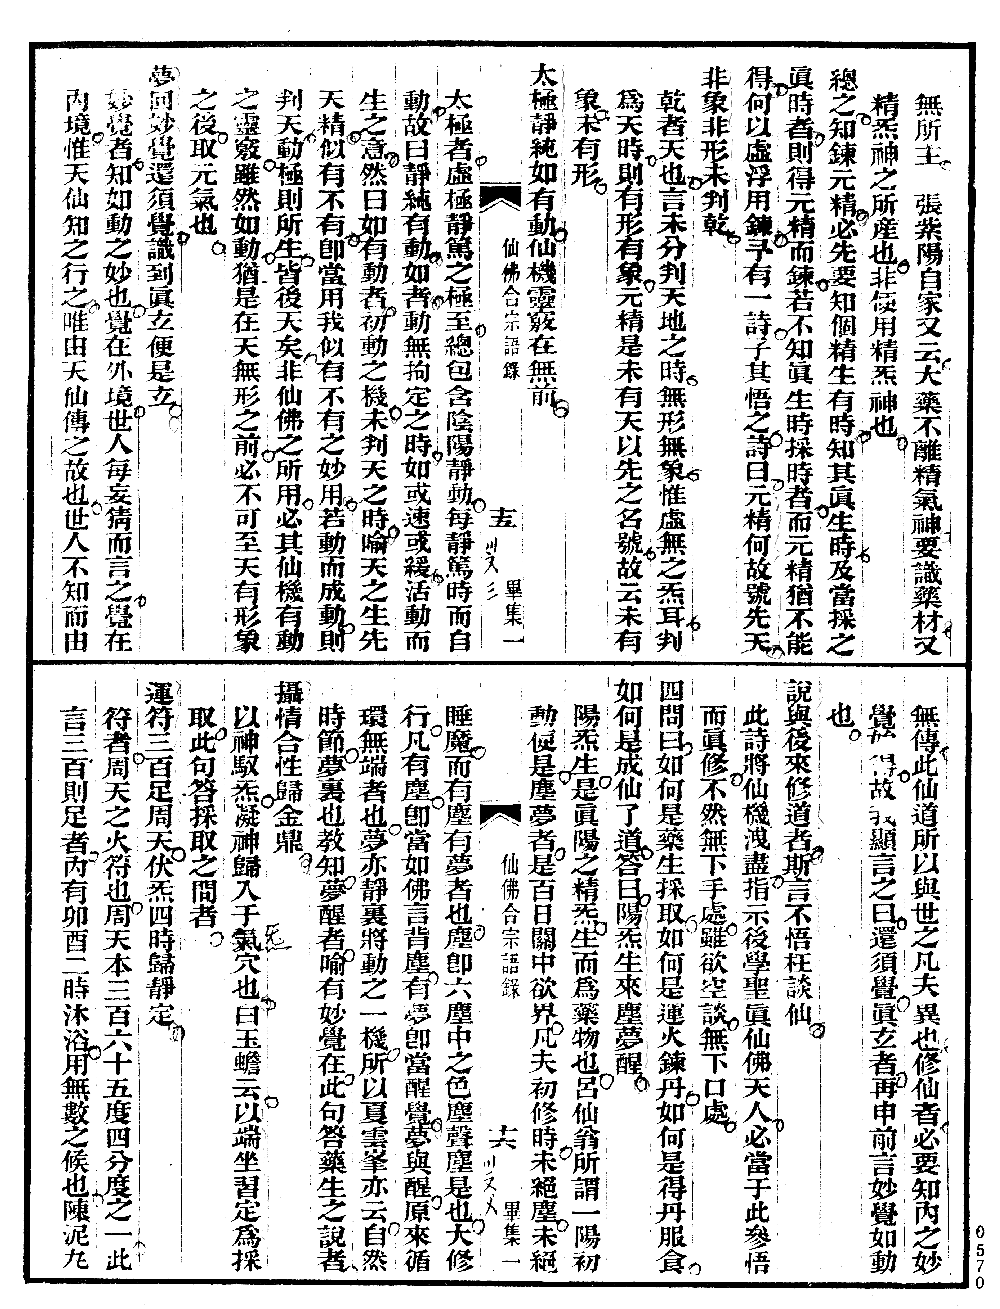 無所主　張紫陽自家又云大藥不離精氣神要識藥材又
精炁神之所産也非便用精炁神也
總之知鍊元精必先要知個精生有時知其眞生時及當採之
眞時者則得元精而鍊若不知眞生時採時者而元精猶不能
得何以虛浮用鍊乎有一詩子其悟之詩曰元精何故號先天
非象非形未判乾
乾者天也言未分判天地之時無形無象惟虛無之炁耳判
爲天時則有形有象元精是未有天以先之名號故云未有
象未有形
太極靜純如有動仙機靈竅在無前
仙佛合宗語錄
十五
畢集一
太極者虛極靜篤之極至總包含陰陽靜動每靜篤時而自
動故曰靜純有動如者動無拘定之時如或速或緩活動而
生之意然曰如有動者初動之機未判天之時喻天之生先
天精似有不有卽當用我似有不有之妙用若動而成動則
判天動極則所生皆後天矣非仙佛之所用必其仙機有動
之靈竅雖然如動猶是在天無形之前必不可至天有形象
之後取元氣也
夢回妙覺還須覺識到眞立便是立
妙覺者知如動之妙也覺在外境世人每妄猜而言之覺在
內境惟天仙知之行之唯由天仙傳之故也世人不知而由
無傳此仙道所以與世之凡夫異也修仙者必要知內之妙
覺故我顯言之曰還須覺眞玄者再申前言妙覺如動
也
說與後來修道者斯言不悟枉談仙
此詩將仙機洩盡指示後學聖眞仙佛天人必當于此參悟
而眞修不然無下手處雖欲空談無下口處
四問曰如何是藥生採取如何是運火鍊丹如何是得丹服食
如何是成仙了道答曰陽炁生來塵夢醒
陽炁生是眞陽之精炁生而爲藥物也呂仙翁所謂一陽初
動便是塵夢者是百日關中欲界凡夫初修時未絕塵未絕
仙佛合宗語錄
十六
畢集一
睡魔而有塵有夢者也塵卽六塵中之色塵聲塵是也大修
行凡有塵卽當如佛言背塵有夢卽當醒覺夢與醒原來循
環無端者也夢亦靜裏將動之一機所以夏雲峯亦云自然
時節夢裏也敎知夢醒者喻有妙覺在此句答藥生之說者
攝情合性歸金鼎
以神馭炁凝神歸入于氣穴也白玉蟾云以端坐習定爲採
取此句答採取之問者
炁
運符三百足周天伏炁四時歸靜定
符者周天之火符也周天本三百六十五度四分度之一此
言三百則足者內有卯酉二時沐浴用無數之候也陳泥丸
0570